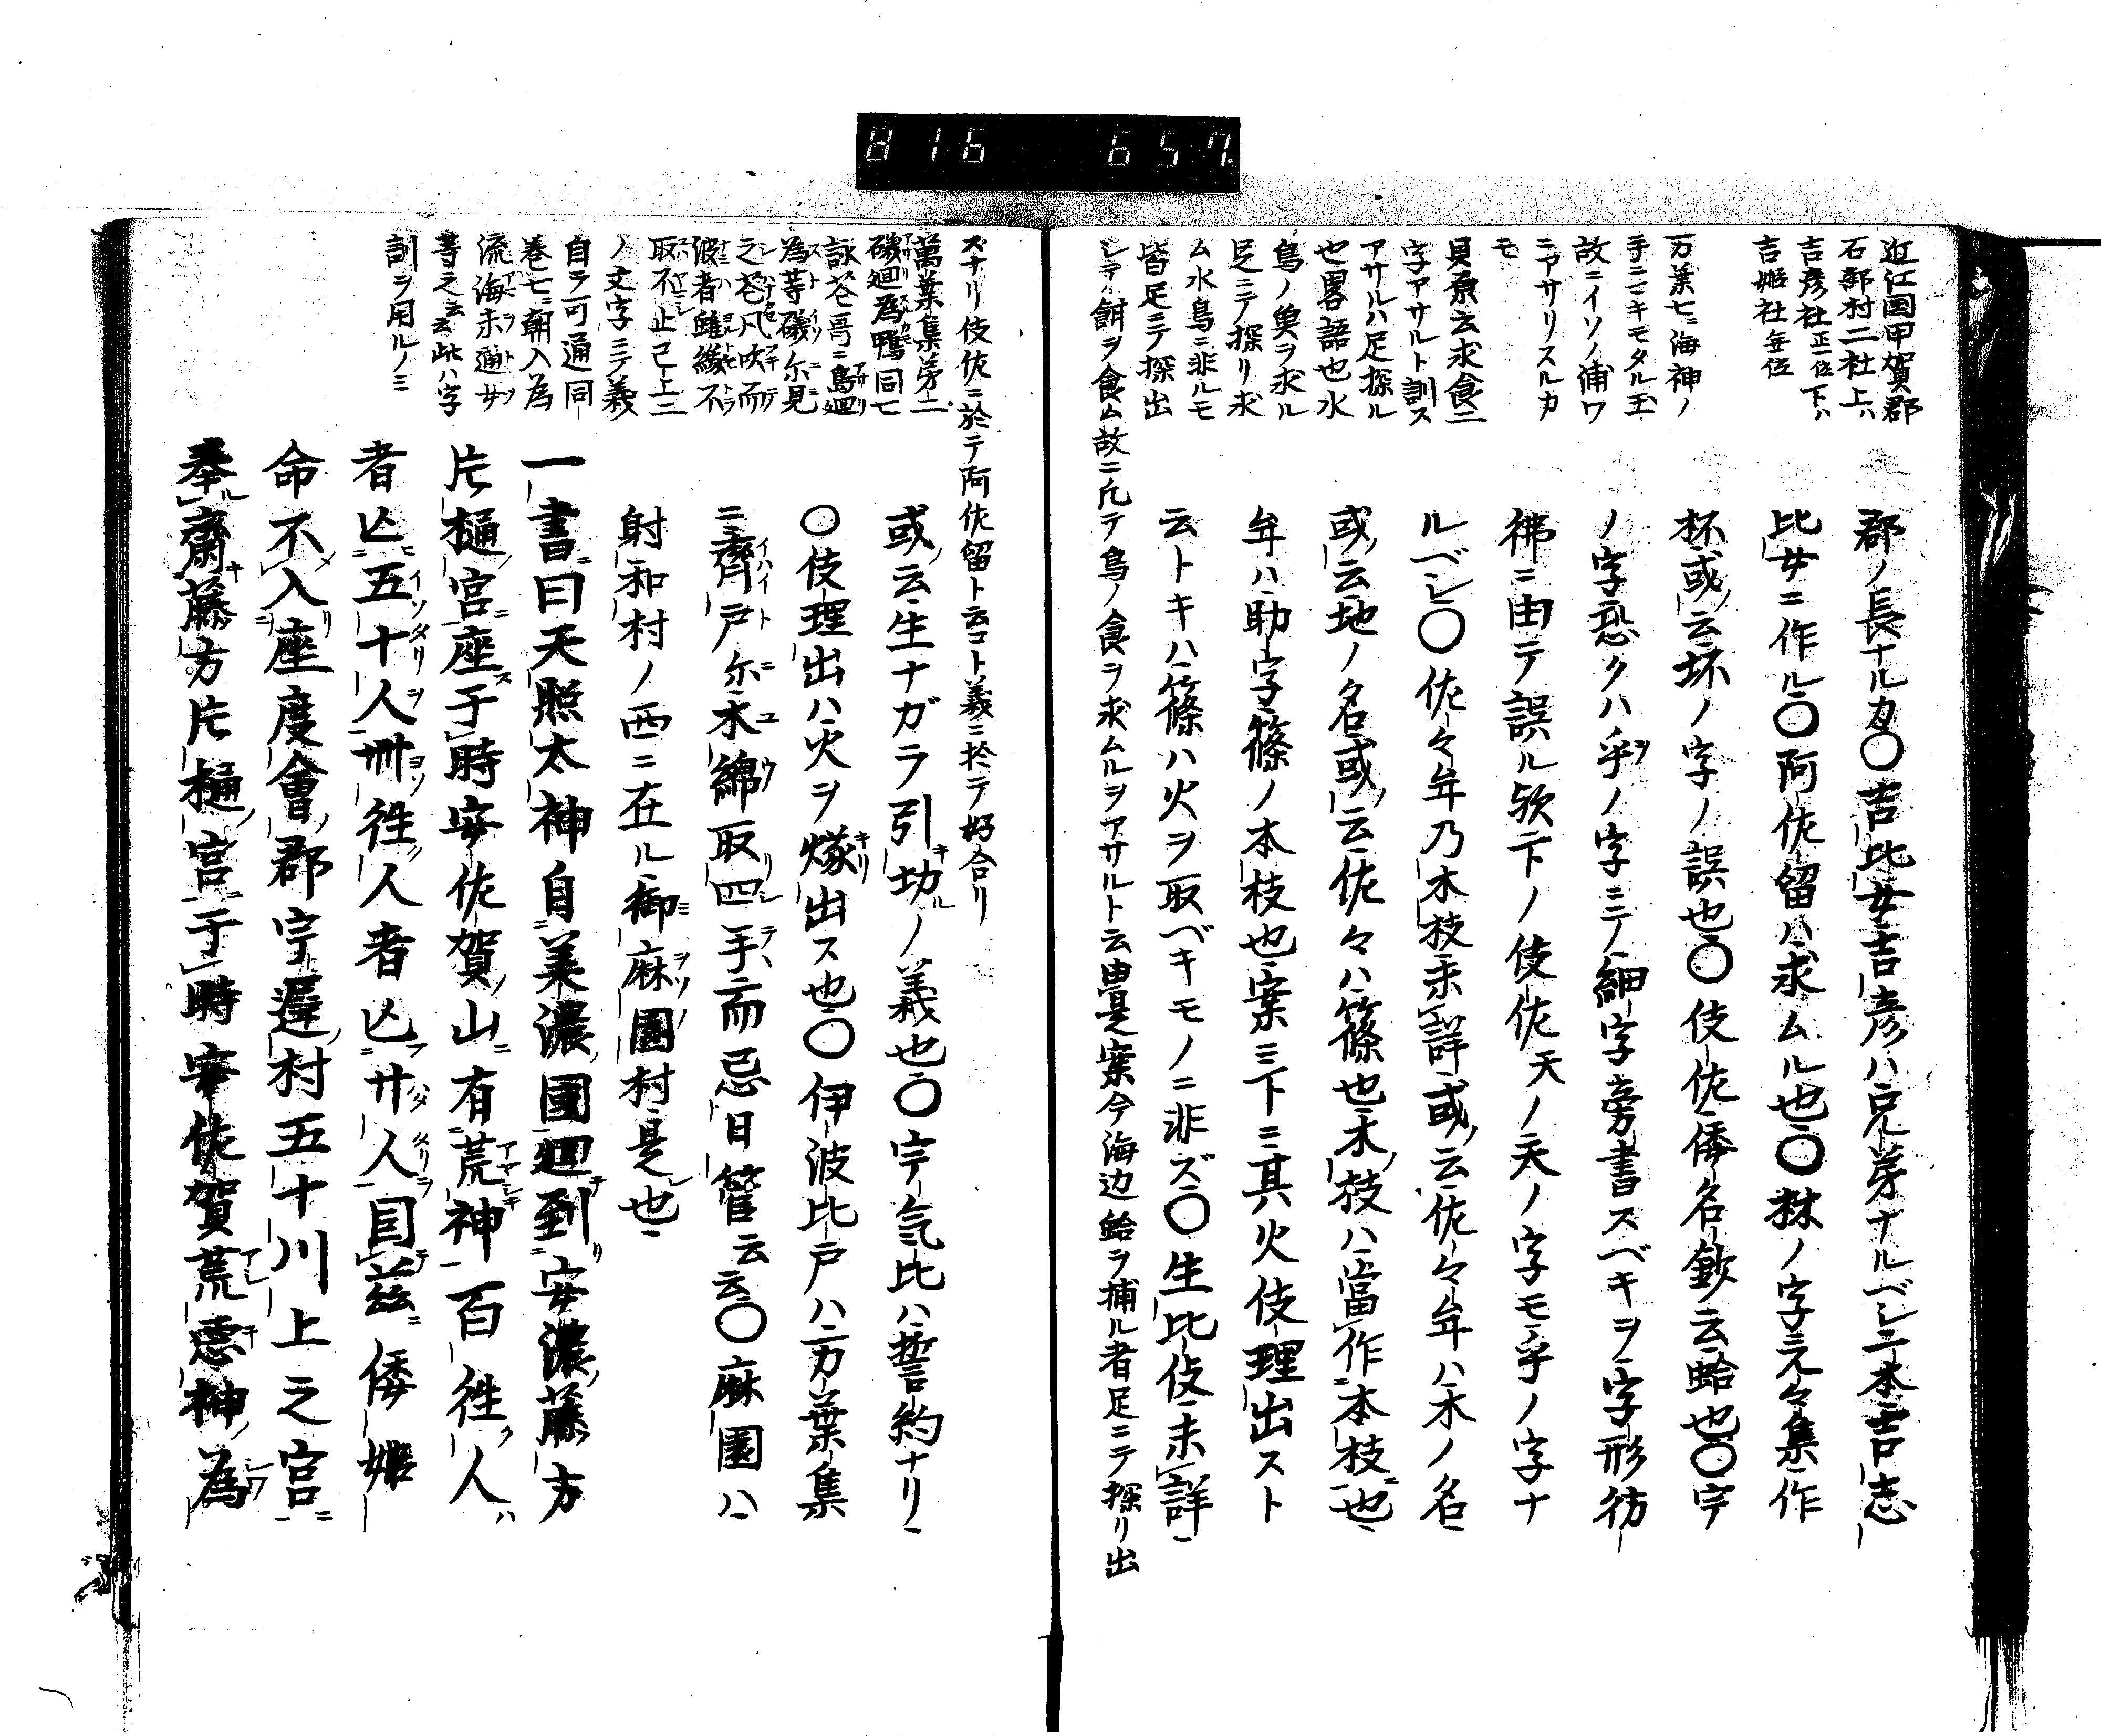 816 657.
近江国甲賀郡
石部村二社上ハ
吉彦社正一位下ハ
吉姫社无位
万葉七ニ海神ノ
手ニマキモタル玉
故ニイソノ浦ワ
ニアサリスルカ
モ
貝原云求食二
字アサルト訓ス
アサルハ足探ル
也畧語也水
鳥ノ魚ヲ求ル
足ニテ探リ求
ム水鳥ニ非ルモ
皆足ニテ探出
シテ餌ヲ食ム故ニ凡テ鳥ノ食ヲ求ムルヲアサルト云由是案今海辺蛤ヲ捕ル者足ニテ探リ出
郡ノ長ナル力〇吉比女吉彦ハ兄弟ナルベシ二本吉志
比女ニ作ル〇阿佐留ハ求ムル也〇ノ字元々集作
杯或云坏ノ字ノ誤也〇伎佐倭名鈔云蛤也〇宇
ノ字恐クハ乎ノ字ニテ細字旁書スベキヲ字形彷
彿ニ由テ誤ル欤下ノ伎佐天ノ天ノ字モ乎ノ字ナ
ルベシ〇佐々牟乃木枝未詳或云佐々牟ハ木ノ名
或云地ノ名或云佐々ハ篠也木枝ハ當作本枝也
牟ハ助字篠ノ本枝也案ニ下ニ其火伎理出スト
云トキハ篠ハ火ヲ取ベキモノニ非ズ〇生比伎未詳
ズナリ伎佐ニ於テ阿佐留ト云コト義ニ於テ好合リ
萬葉集第二
礒廻為鴨同七
詠苍哥ニ島廻
為等礒尓見
之苍風吹而
波者雖縁不
取不止已上二
ノ文字ニテ義
自ラ可通同
巻七ニ朝入為
流海未通女
等之云云此ハ字
訓ヲ用ルノミ
或云生ナガラ引切ノ義也〇宇気比ハ誓約ナリ
〇伎理出ハ火ヲ燧出ス也〇伊波比戸ハ万葉集
ニ齊戸尓木綿取四手而忌日管云云〇麻園ハ
射和村ノ西ニ在ル御麻園村是也
一書曰天照太神自美濃國廻到安濃藤方
片樋宮座于時安佐賀山有荒神百往人
者亡五十人卌往人者亡廿人因茲倭姫
命不入座度會郡宇遅村五十川上之宮
奉齋藤方片樋宮于時安佐賀荒悪神為